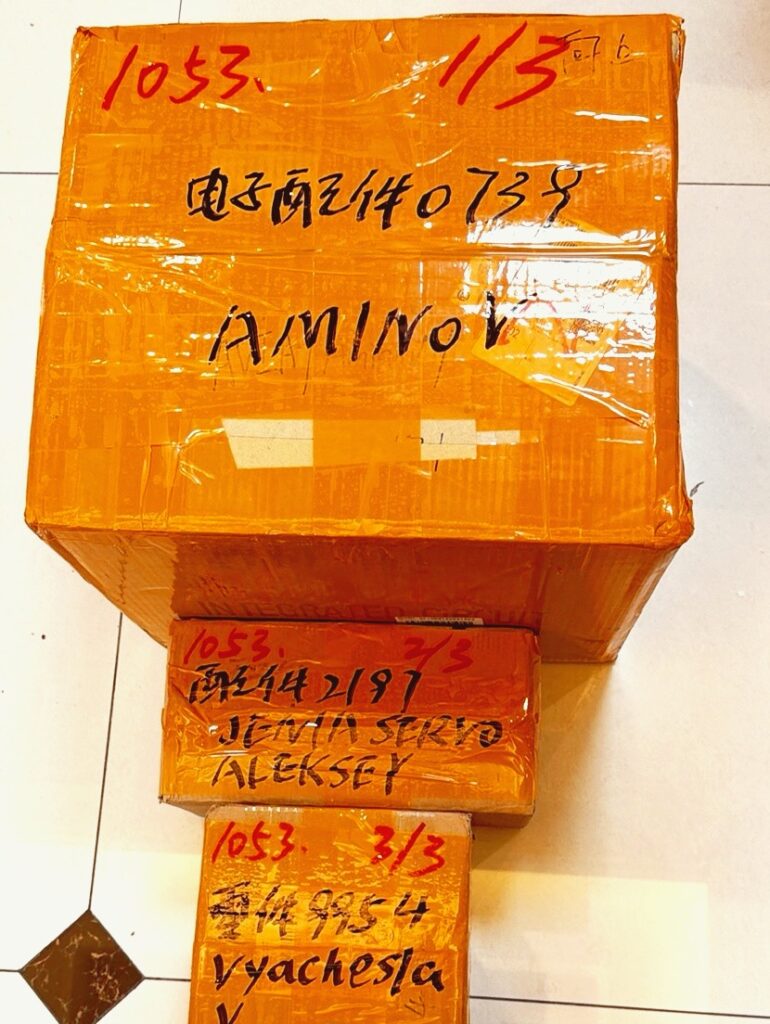 1053. 1/3
电子配件0739
AMINOV
INTEGRATED CIRCUIT
1053. 2/3
配件2197
JENIA SERVO
ALEKSEY
1053. 3/3
配件9954
vyachesla
v